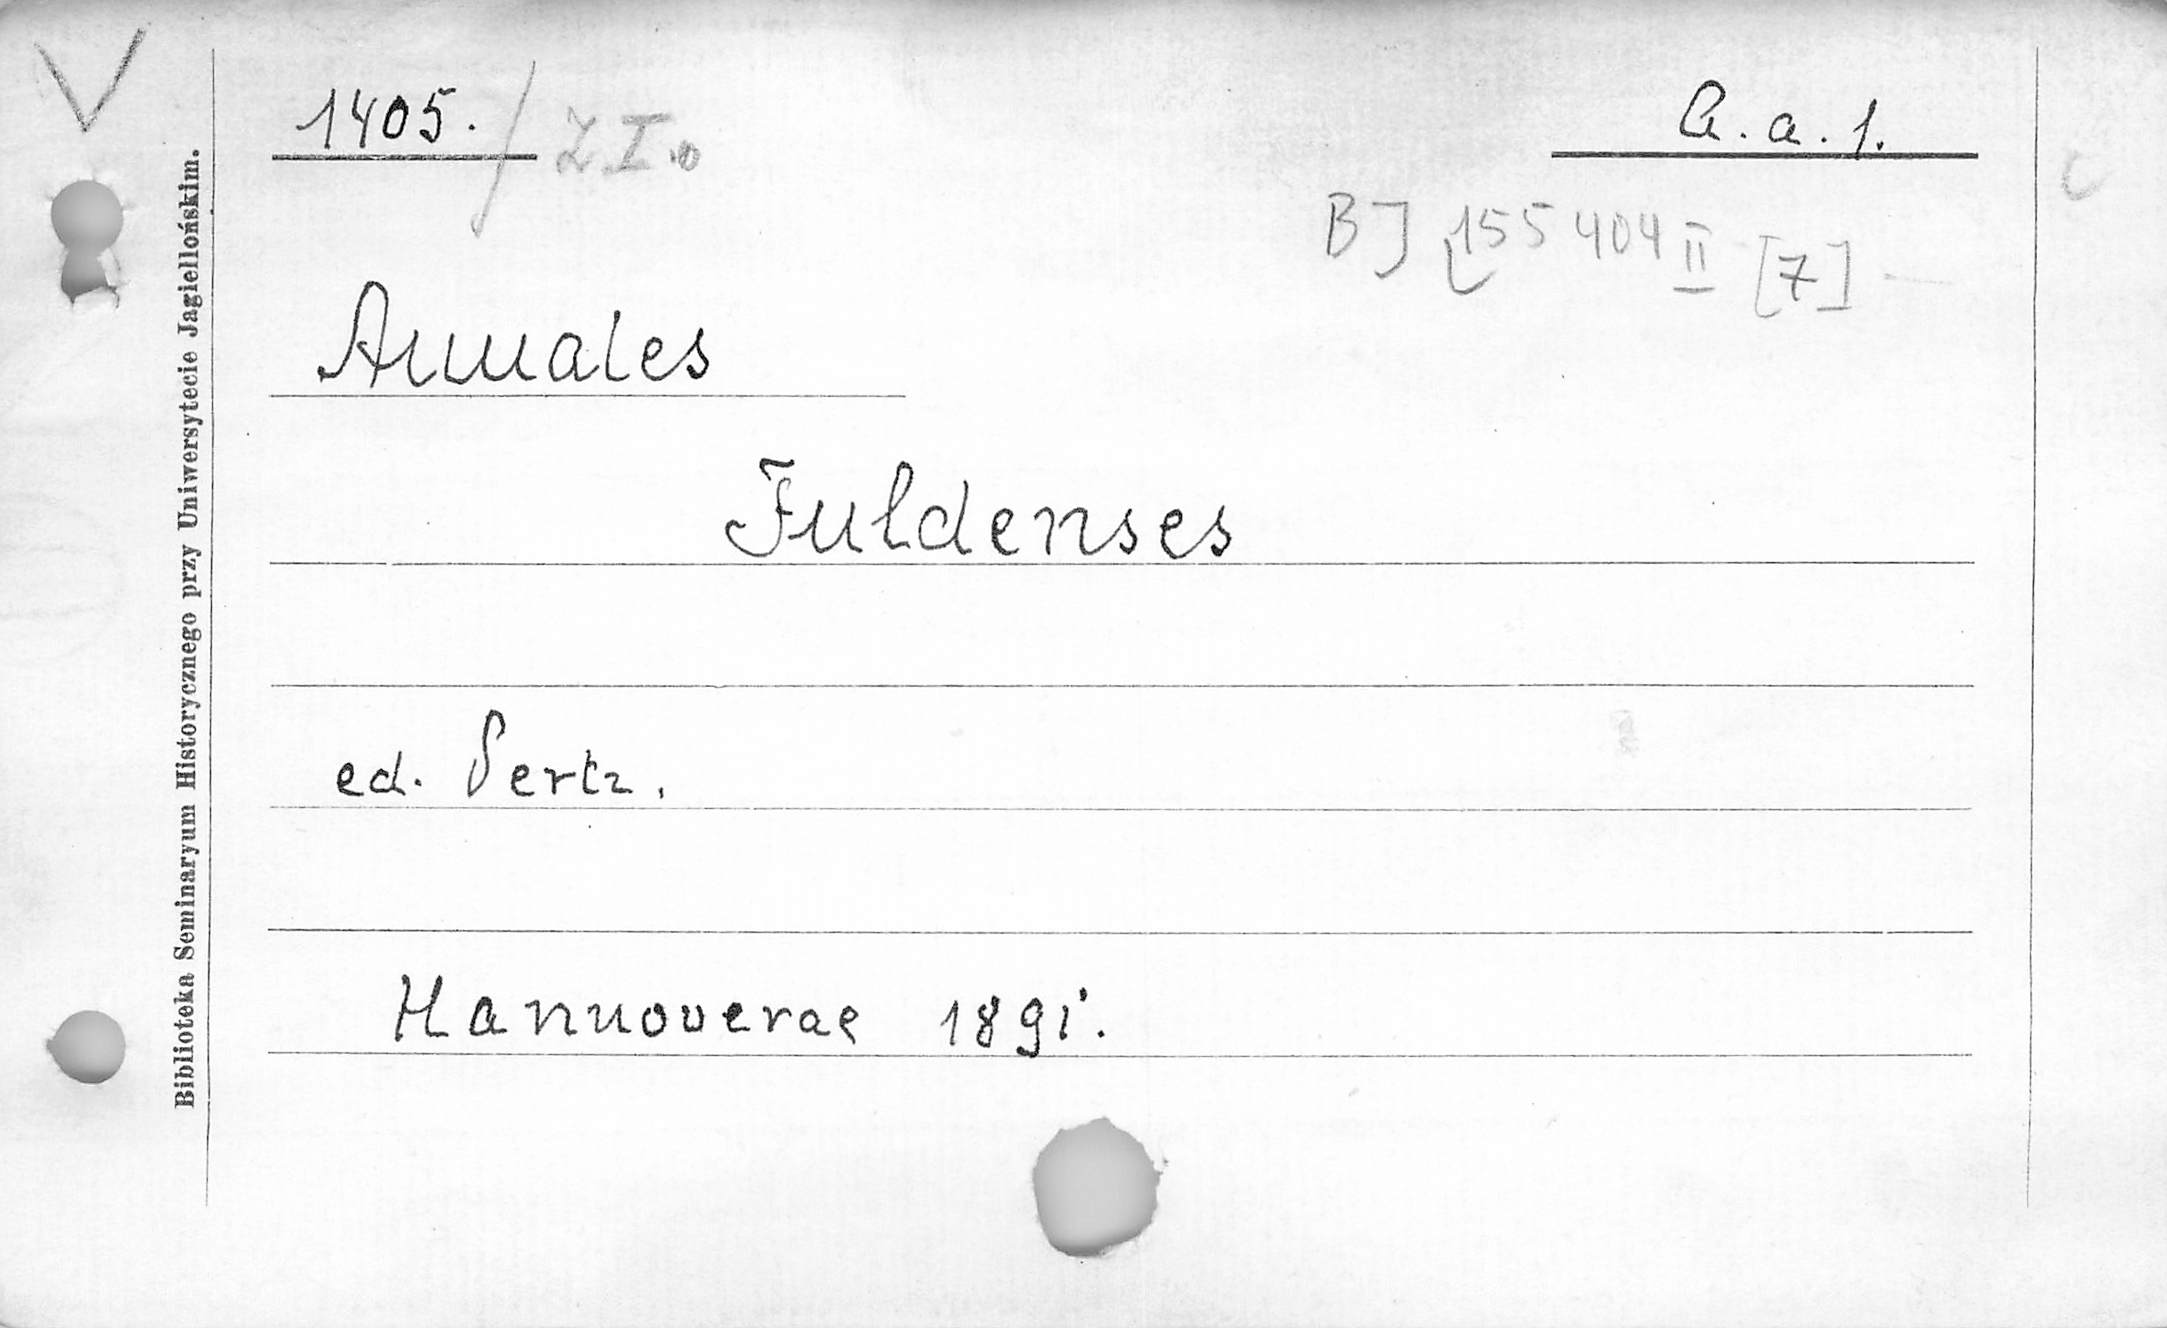 V
1405. / Z.I.
A. a. 1.
BJ 155 404 II [7]
Annales
Fuldenses
ed. Pertz.
Hannoverae 1891.
Biblioteka Seminaryum Historycznego przy Uniwersytecie Jagiellońskim.